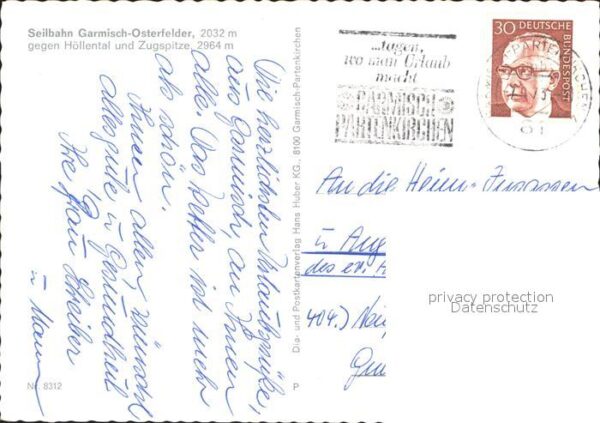 Seilbahn Garmisch-Osterfelder, 2032 m
gegen Höllental und Zugspitze, 2964 m
Die herzlichsten Urlaubsgrüße,
aus Garmisch an Ihnen
alle. Das Wetter ist mehr
als schön.
Ihnen allen, wünscht
alles gute u Gesundheit
Ihre Frau Schreiber
u Mann
Nr. 8312
Dia- und Postkartenverlag Hans Huber KG., 8100 Garmisch-Partenkirchen
P
...tagen,
wo man Urlaub
macht
GARMISCH
PARTENKIRCHEN
30 DEUTSCHE
BUNDESPOST
An die Heim-Insassen
u Ang
des ev. A
404.)
privacy protection
Datenschutz